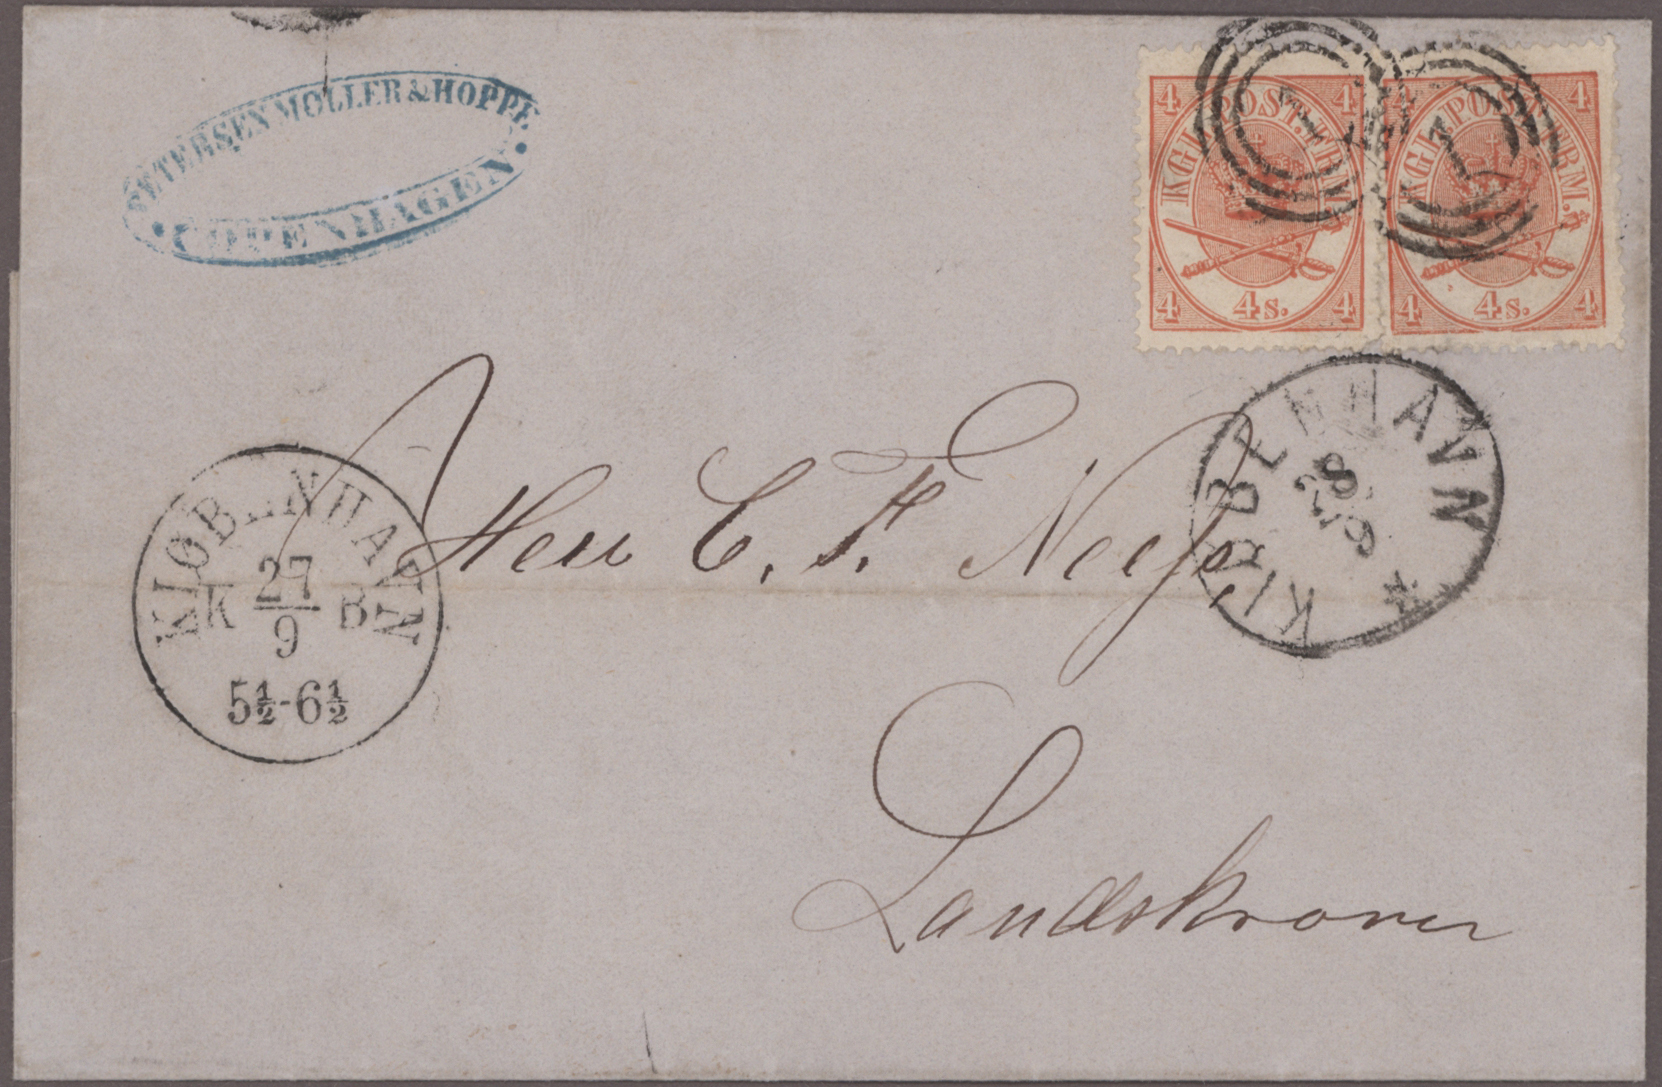 PETERSEN MØLLER & HOPPE
COPENHAGEN.
4 KGL. POST. FRM. 4
4 4s. 4
4 KGL. POST. FRM. 4
4 4s. 4
1
1
KIØBENHAVN
K 27 B
9
5½-6½
KIØBENHAVN
Herr C. F.
Landskrona